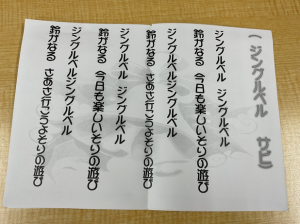 (ジングルベル サビ)
ジングルベル ジングルベル
鈴がなる 今日も楽しいそりの遊び
ジングルベルジングルベル
鈴がなる さあさ行こうよそりの遊び
ジングルベル ジングルベル
鈴がなる 今日も楽しいそりの遊び
ジングルベルジングルベル
鈴がなる さあさ行こうよそりの遊び